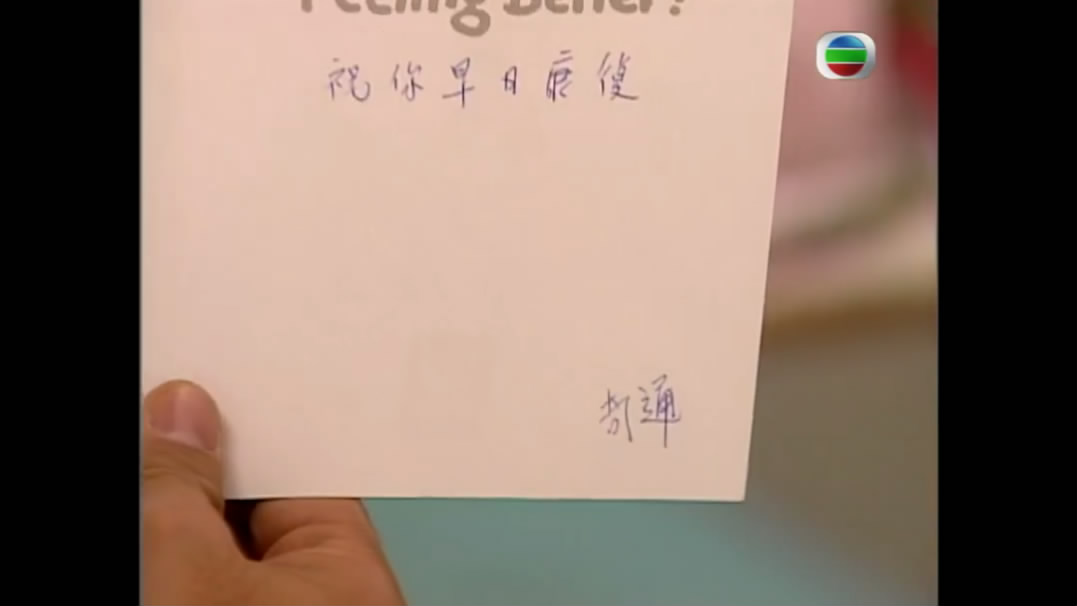 Feeling Better?
祝你早日康復